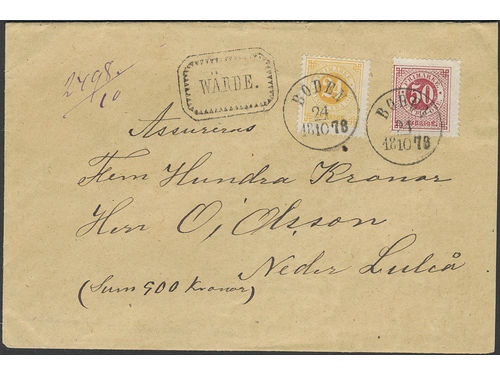 2498
10
WÄRDE.
24
50
BODEN
24
1810 78
BODEN
24
1810 78
Assureras
Fem Hundra Kronor
Herr O, Olsson
Neder Luleå
(Sum 900 Kronor)